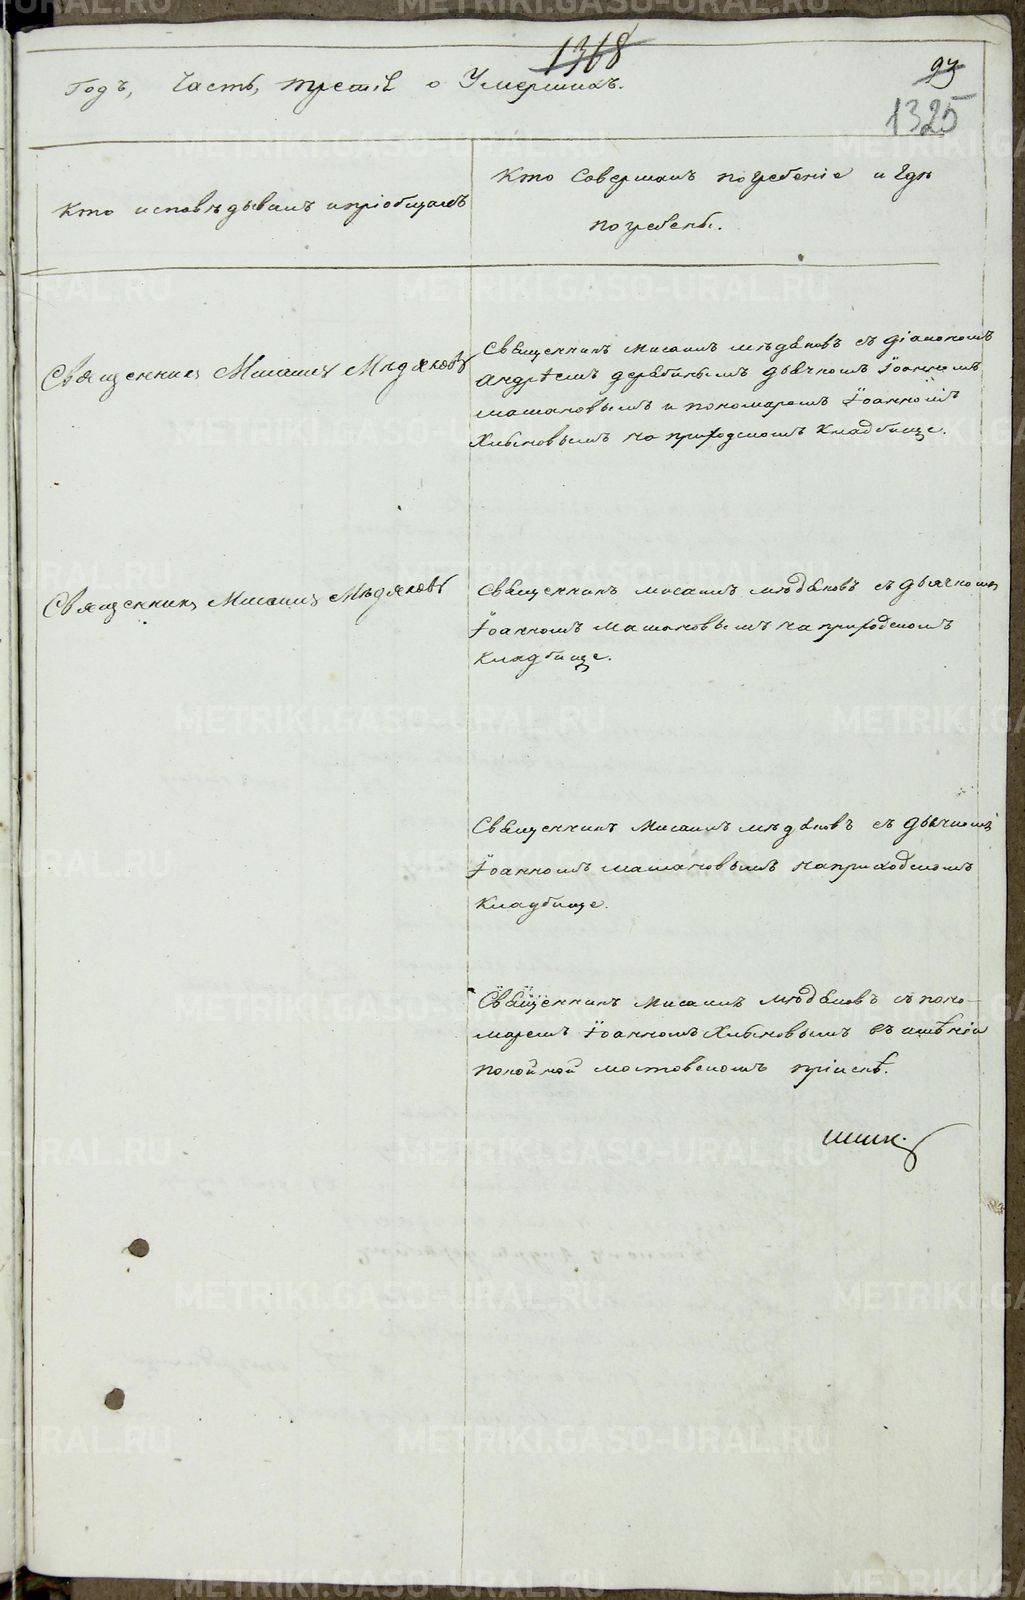 1368
93
1325
Годъ, Часть, третiя о Умершихъ.
Кто исповѣдывалъ и прiобщалъ
Кто Совершалъ погребенiе и Гдѣ
погребены.
Священникъ Мисаилъ Мѣдяковъ
Священникъ Мисаилъ мѣдяковъ съ дiакономъ
Андрѣемъ дерябинымъ дьячкомъ Iоанномъ
машановымъ и пономаремъ Iоанномъ
Хлыновымъ на приходскомъ Кладбище.
Священникъ Мисаилъ Мѣдяковъ
Священникъ мисаилъ мѣдяковъ съ дьячкомъ
Iоанномъ Машановымъ на приходскомъ
Кладбище.
Священникъ Мисаилъ мѣдяковъ съ дьячкомъ
Iоанномъ машановымъ на приходскомъ
Кладбище.
Священникъ Мисаилъ мѣдяковъ съ поно-
маремъ Iоанномъ Хлыновымъ въ имѣнiи
покойной мостовскомъ прiискѣ.